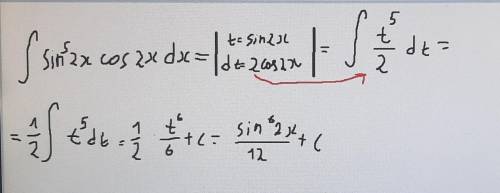 ∫ sin⁵2x cos2x dx = | t = sin2x dt = 2cos2x | = ∫ t⁵/2 dt =
= 1/2 ∫ t⁵dt = 1/2 t⁶/6 + C = sin⁶2x/12 + C